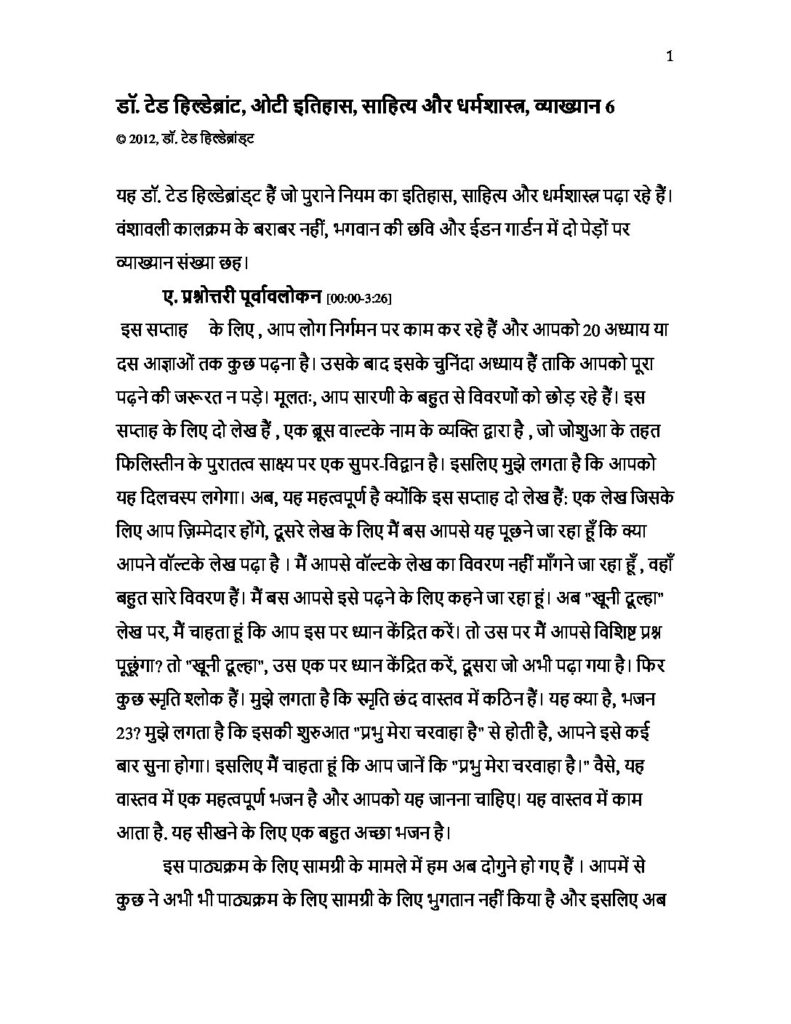 1
डॉ. टेड हिल्डेब्रांट, ओटी इतिहास, साहित्य और धर्मशास्त्र, व्याख्यान 6
© 2012, डॉ. टेड हिल्डेब्रांड्ट
यह डॉ. टेड हिल्डेब्रांड्ट हैं जो पुराने नियम का इतिहास, साहित्य और धर्मशास्त्र पढ़ा रहे हैं।
वंशावली कालक्रम के बराबर नहीं, भगवान की छवि और ईडन गार्डन में दो पेड़ों पर
व्याख्यान संख्या छह।
ए. प्रश्नोत्तरी पूर्वावलोकन [00:00-3:26]
इस सप्ताह के लिए , आप लोग निर्गमन पर काम कर रहे हैं और आपको 20 अध्याय या
दस आज्ञाओं तक कुछ पढ़ना है। उसके बाद इसके चुनिंदा अध्याय हैं ताकि आपको पूरा
पढ़ने की जरूरत न पड़े। मूलतः, आप सारणी के बहुत से विवरणों को छोड़ रहे हैं। इस
सप्ताह के लिए दो लेख हैं , एक ब्रूस वाल्टके नाम के व्यक्ति द्वारा है , जो जोशुआ के तहत
फिलिस्तीन के पुरातत्व साक्ष्य पर एक सुपर-विद्वान है। इसलिए मुझे लगता है कि आपको
यह दिलचस्प लगेगा। अब, यह महत्वपूर्ण है क्योंकि इस सप्ताह दो लेख हैं: एक लेख जिसके
लिए आप ज़िम्मेदार होंगे, दूसरे लेख के लिए मैं बस आपसे यह पूछने जा रहा हूँ कि क्या
आपने वॉल्टके लेख पढ़ा है । मैं आपसे वॉल्टके लेख का विवरण नहीं माँगने जा रहा हूँ , वहाँ
बहुत सारे विवरण हैं। मैं बस आपसे इसे पढ़ने के लिए कहने जा रहा हूं। अब "खूनी दूल्हा"
लेख पर, मैं चाहता हूं कि आप इस पर ध्यान केंद्रित करें। तो उस पर मैं आपसे विशिष्ट प्रश्न
पूछूंगा? तो "खूनी दूल्हा", उस एक पर ध्यान केंद्रित करें, दूसरा जो अभी पढ़ा गया है। फिर
कुछ स्मृति श्लोक हैं। मुझे लगता है कि स्मृति छंद वास्तव में कठिन हैं। यह क्या है, भजन
23? मुझे लगता है कि इसकी शुरुआत "प्रभु मेरा चरवाहा है" से होती है, आपने इसे कई
बार सुना होगा। इसलिए मैं चाहता हूं कि आप जानें कि "प्रभु मेरा चरवाहा है।" वैसे, यह
वास्तव में एक महत्वपूर्ण भजन है और आपको यह जानना चाहिए। यह वास्तव में काम
आता है. यह सीखने के लिए एक बहुत अच्छा भजन है।
इस पाठ्यक्रम के लिए सामग्री के मामले में हम अब दोगुने हो गए हैं । आपमें से
कुछ ने अभी भी पाठ्यक्रम के लिए सामग्री के लिए भुगतान नहीं किया है और इसलिए अब